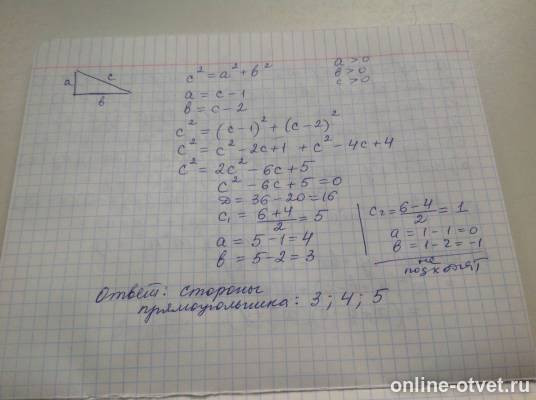 a c
в
c² = a² + в²
a = c - 1
в = c - 2
a > 0
в > 0
c > 0
c² = (c-1)² + (c-2)²
c² = c² - 2c + 1 + c² - 4c + 4
c² = 2c² - 6c + 5
c² - 6c + 5 = 0
D = 36 - 20 = 16
c₁ = (6+4)/2 = 5
a = 5 - 1 = 4
в = 5 - 2 = 3
c₂ = (6-4)/2 = 1
a = 1 - 1 = 0
в = 1 - 2 = -1
не
подходит
Ответ: стороны
прямоугольника: 3; 4; 5
online-otvet.ru